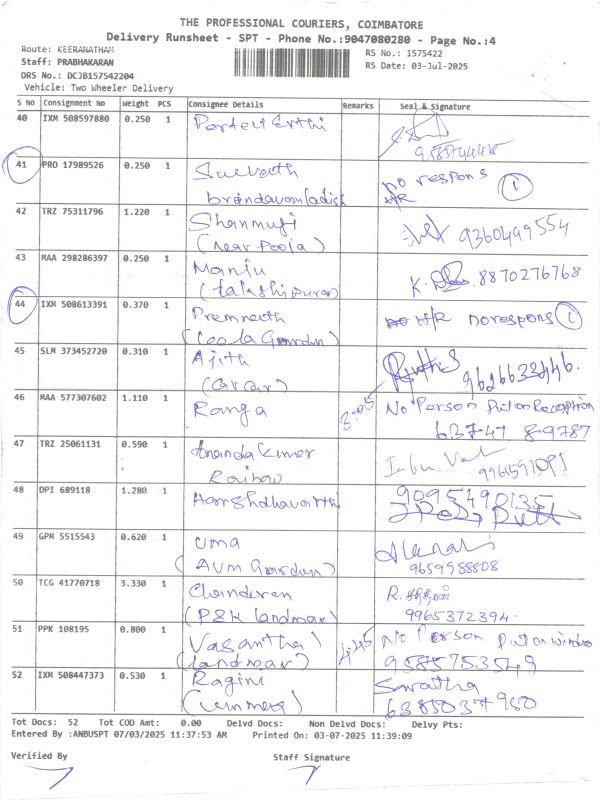 THE PROFESSIONAL COURIERS, COIMBATORE
Delivery Runsheet - SPT - Phone No.:9047080280 - Page No.:4
Route: KEERANATHAM
RS No.: 1575422
Staff: PRABHAKARAN
RS Date: 03-Jul-2025
DRS No.: DCJB157542204
Vehicle: Two Wheeler Delivery
S NO Consignment No Weight PCS Consignee Details Remarks Seal & Signature
40 IXM 508597880 0.250 1
41 PRO 17989526 0.250 1 no respons 1
42 TRZ 75311796 1.220 1 Shanmugi 9360499554
(Near Poola)
43 MAA 298286397 0.250 1 Manju 8870276768
44 IXM 508613391 0.370 1 Premnath norespons 1
45 SLM 373452720 0.310 1 Ajith 9626633446
46 MAA 577307602 1.110 1 Ranga No Person Put on Reception
63747 89787
47 TRZ 25061131 0.590 1 Ananda Kumar
48 DPI 689118 1.280 1 9095490135
49 GPM 5515543 0.620 1 Uma
(AVM Garden) 9659988808
50 TCG 41770718 3.330 1 Chandran R.
(P&K landmar) 9965372394
51 PPK 108195 0.800 1 Vasantha 4:45 No Person Put on window
(landmar) 9585753549
52 IXM 508447373 0.530 1 Ragini Swatha
6385037950
Tot Docs: 52 Tot COD Amt: 0.00 Delvd Docs: Non Delvd Docs: Delvy Pts:
Entered By :ANBUSPT 07/03/2025 11:37:53 AM Printed On: 03-07-2025 11:39:09
Verified By Staff Signature